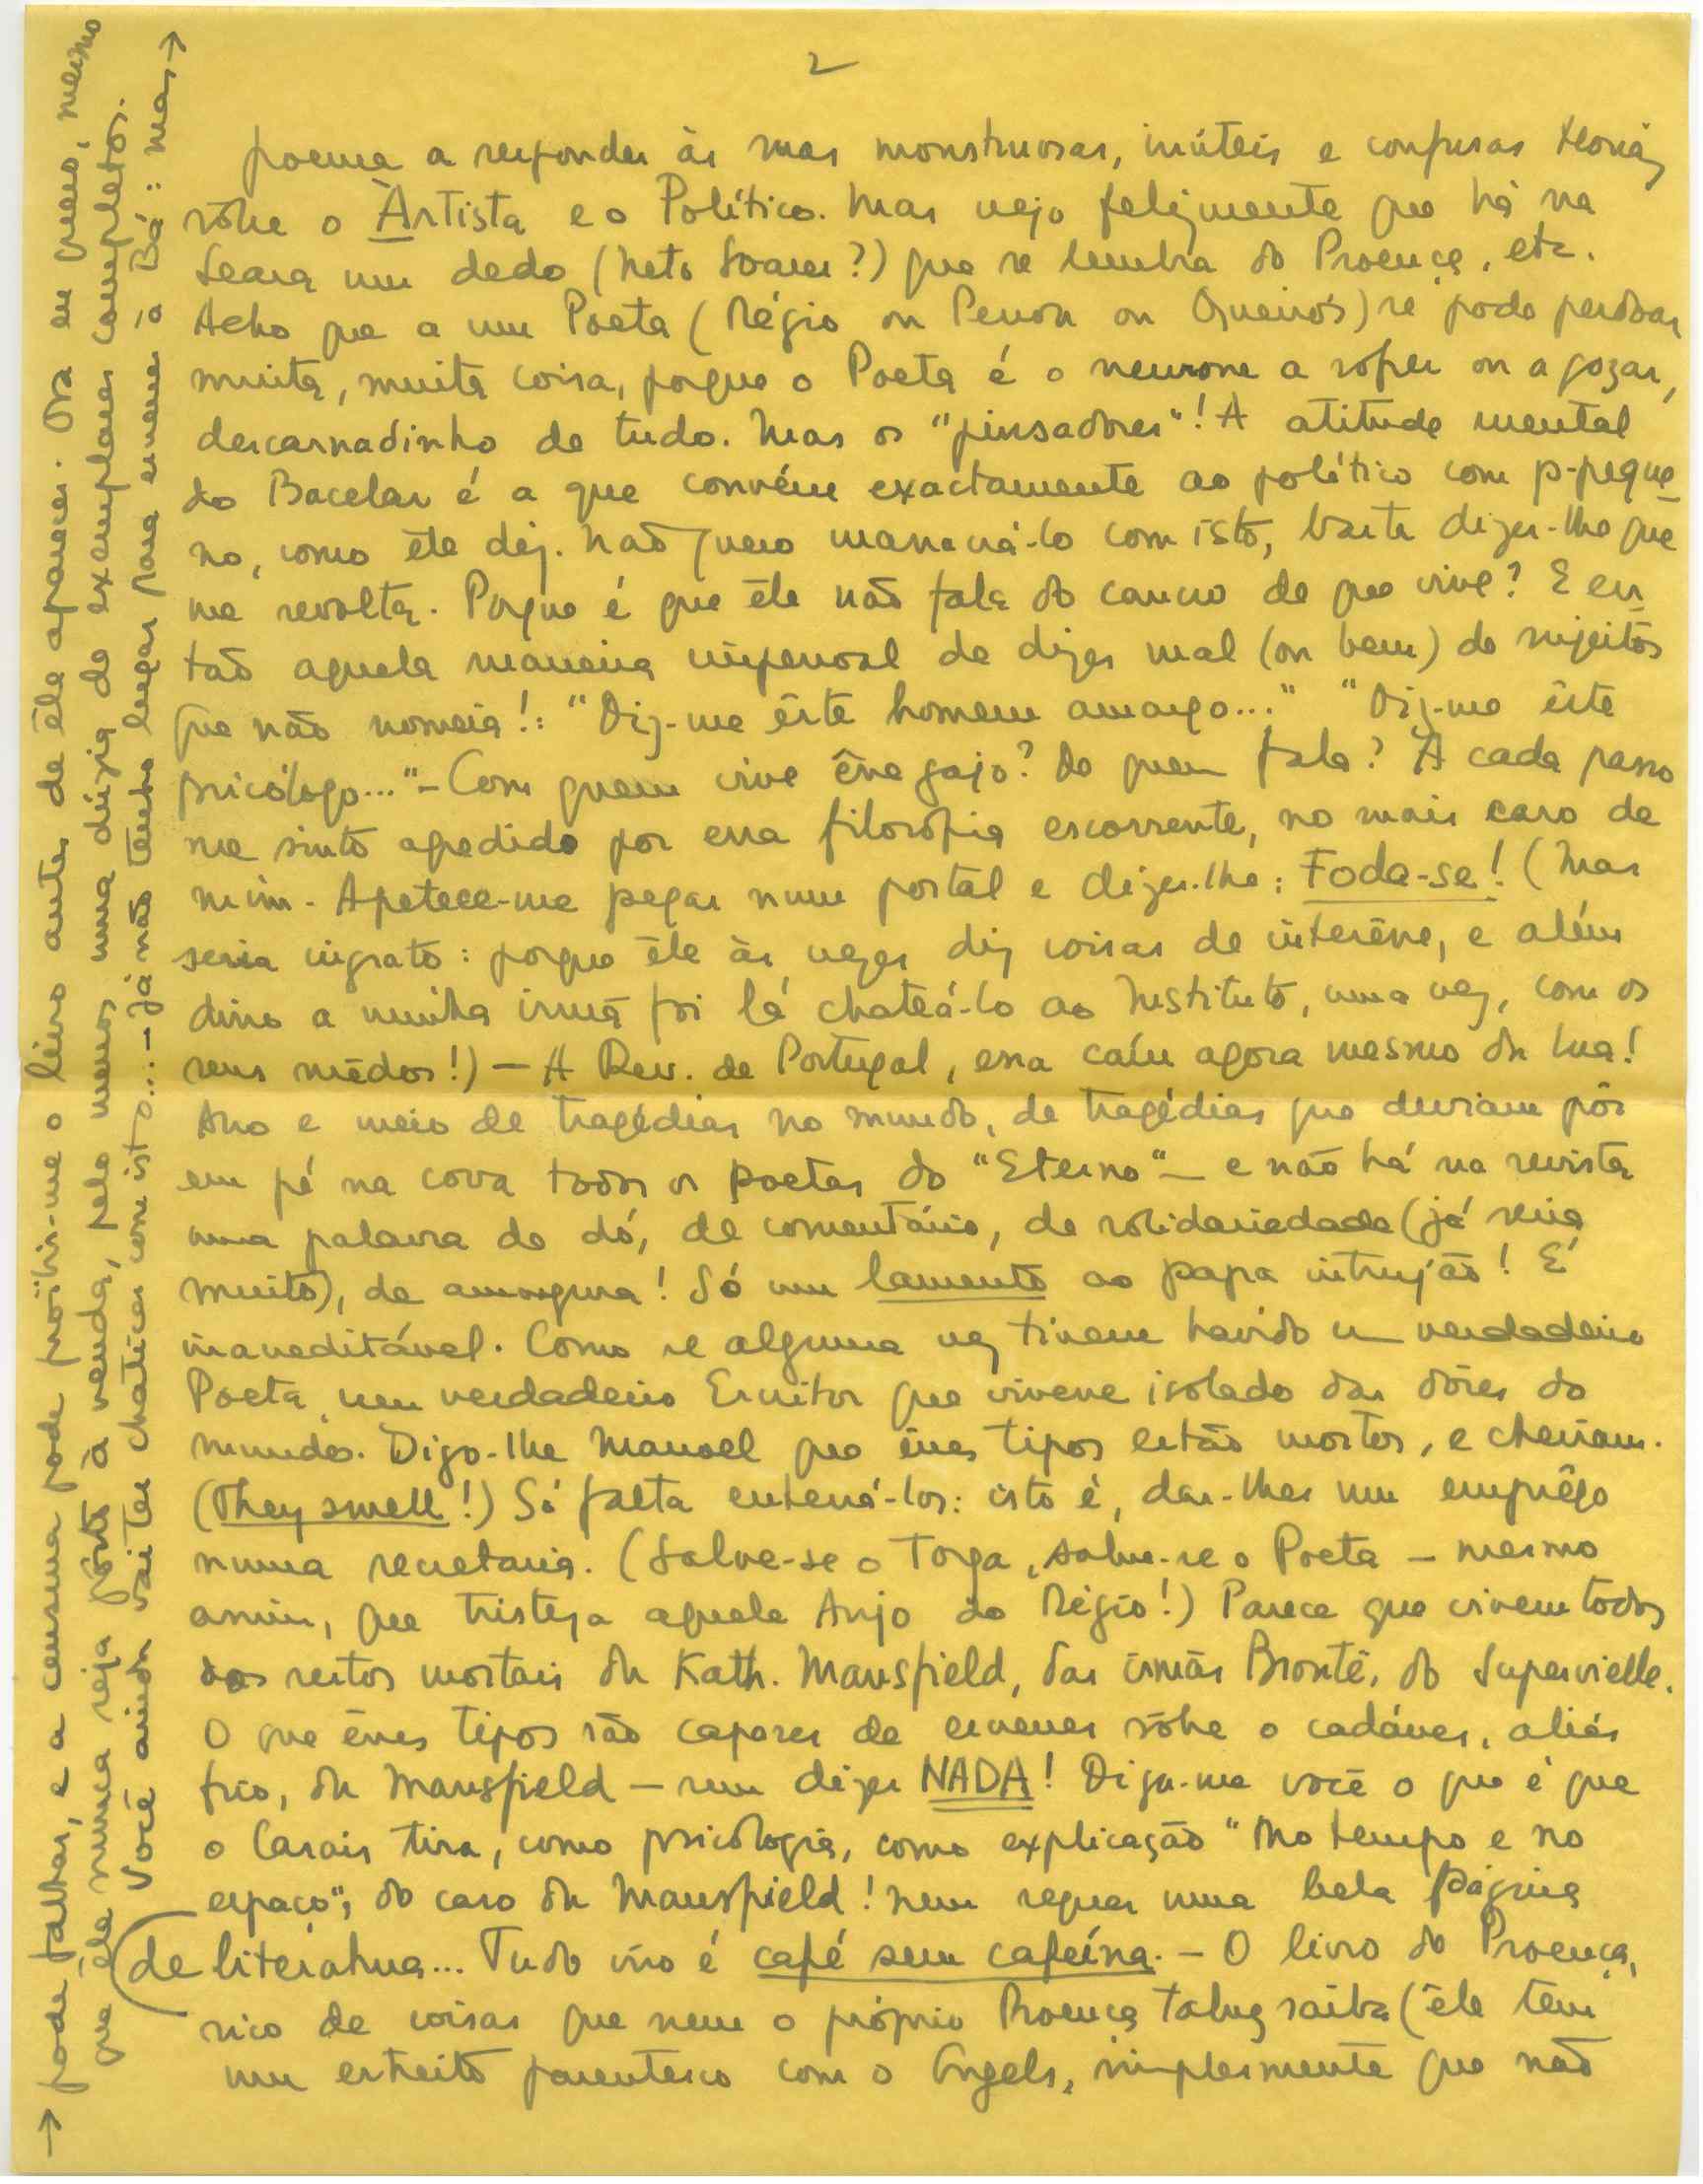 2
poema a responder às suas monstruosas, inúteis e confusas teorias
sôbre o Artista e o Político. Mas vejo felizmente que há na
Seara um dedo (Neto Soares?) que se lembra do Proença, etc.
Acho que a um Poeta (Régio ou Pessoa ou Queirós) se pode perdoar
muita, muita coisa, porque o Poeta é o neurone a sofrer ou a gozar,
descarnadinho de tudo. Mas os "pinsadores"! A atitude mental
do Bacelar é a que convém exactamente ao político com p-peque-
no, como êle diz. Não quero massacrá-lo com isto, basta dizer-lhe que
me revolta. Porque é que êle não fala do cancro de que vive? E en-
tão aquela maneira impessoal de dizer mal (ou bem) de sujeitos
que não nomeia!: "Diz-me êste homem amargo..." "Diz-me êste
psicólogo..." – Com quem vive êsse gajo? De quem fala? A cada passo
me sinto agredido por essa filosofia escorrente, no mais caro de
mim. Apetece-me pegar num postal e dizer-lhe: Foda-se! (Mas
seria ingrato: porque êle às vezes diz coisas de interêsse, e além
disso a minha irmã foi lá chateá-lo ao Instituto, uma vez, com os
seus mêdos!) – A Rev. de Portugal, essa caíu agora mesmo da lua!
Ano e meio de tragédias no mundo, de tragédias que deviam pôr
em pé na cova todos os poetas do "Eterno" – e não há na revista
uma palavra de dó, de comentário, de solidariedade (já seria
muito), de amargura! Só um lamento ao papa intrujão! É
inacreditável. Como se alguma vez tivesse havido um verdadeiro
Poeta, um verdadeiro Escritor que vivesse isolado das dôres do
mundo. Digo-lhe Manoel que êsses tipos estão mortos, e cheiram.
(They smell!) Só falta enterrá-los: isto é, dar-lhes um emprêgo
numa secretaria. (Salve-se o Torga, salve-se o Poeta – mesmo
assim, que tristeza aquele Anjo do Régio!) Parece que vivem todos
dos restos mortais da Kath. Mansfield, das irmãs Brontë, do Supervielle.
O que êsses tipos são capazes de escrever sôbre o cadáver, aliás
frio, da Mansfield – sem dizer NADA! Diga-me você o que é que
o Casais tira, como psicologia, como explicação "no tempo e no
espaço", do caso da Mansfield! Nem sequer uma bela página
de literatura... Tudo isso é café sem cafeína. – O livro do Proença,
rico de coisas que nem o próprio Proença talvez saiba (êle tem
um estreito parentesco com o Engels, simplesmente que não
→ pode falhar, e a censura pode proïbir-me o livro antes de êle aparecer. Ora eu quero, mesmo
que êle nunca seja pôsto à venda, pelo menos uma dúzia de exemplares completos.
Você ainda vai ter chatices com isto... – Já não tenho lugar para escrever à Bá: mas →